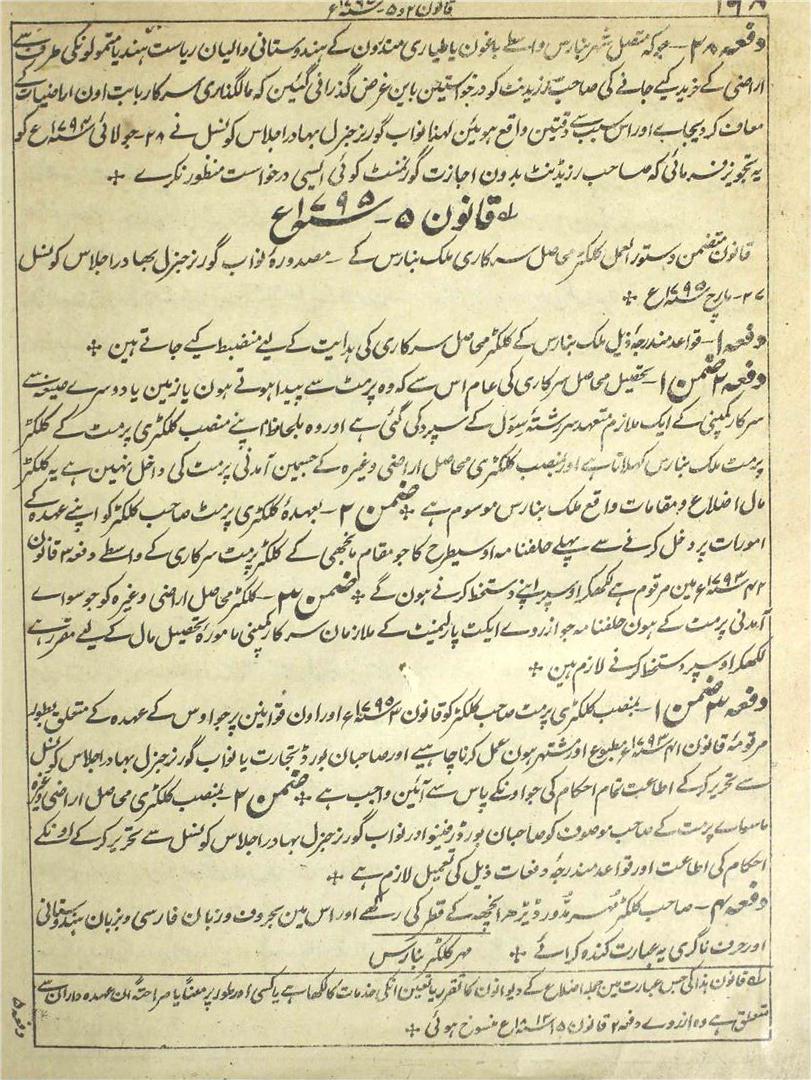 قانون ۲ و ۵ - سنہ ۱۷۹۵ع
دفعہ ۲۸ - جو کہ متصل شہر بنارس واسطے باغون یا طیاری مندرون کے ہندوستانی والیان ریاست ہند یا متمولونکی طرف سے
اراضی کے خرید کیے جانے کی صاحب رزیڈنٹ کو درخواستین باین غرض گذرانی گئین کہ مالگذاری سرکار بابت اون اراضیات کے
معاف کر دیجاے اور اس سبب سے دقتین واقع ہوئین لہذا نواب گورنر جنرل بہادر اجلاس کونسل نے ۲۸ - جولائی سنہ ۱۷۹۴ع کو
یہ تجویز فرمائی کہ صاحب رزیڈنٹ بدون اجازت گورنمنٹ کوئی ایسی درخواست منظور نکرے ÷
لہ قانون ۵ - سنہ ۱۷۹۵ع
قانون متضمن دستور العمل کلکٹر محاصل سرکاری ملک بنارس کے - مصدورۂ نواب گورنر جنرل بہادر اجلاس کونسل
۲۷ - مارچ سنہ ۱۷۹۵ع ÷
دفعہ ۱ - قواعد مندرجۂ ذیل ملک بنارس کے کلکٹر محاصل سرکاری کی ہدایت کے لیے منضبط کیے جاتے ہین ÷
دفعہ ۲ ضمن ۱ - تحصیل محاصل سرکاری کی عام اس سے کہ وہ پرمٹ سے پیدا ہوتے ہون یا زمین یا دوسرے صیغہ سے
سرکار کمپنی کے ایک ملازم متعہد سررشتۂ سیول کے سپرد کی گئی ہے اور وہ بلحاظ اپنے منصب کلکٹری پرمٹ کے کلکٹر
پرمٹ ملک بنارس کہلاتا ہے اور بمنصب کلکٹری محاصل اراضی وغیرہ کے جسمین آمدنی پرمٹ کی داخل نہین ہے یہ کلکٹر
مال اضلاع و مقامات واقع ملک بنارس موسوم ہے ÷ ضمن ۲ - بعہدۂ کلکٹری پرمٹ صاحب کلکٹر کو اپنے عہدہ کے
امورات پر دخل کرنے سے پہلے حلفنامہ اوسیطرح کا جو مقام مانجھی کے کلکٹر پرمٹ سرکاری کے واسطے دفعہ ۳ قانون
۴۲ سنہ ۱۷۹۳ع مین مرقوم ہے لکھکر اوسپر اپنے دستخط کرنے ہون گے ÷ ضمن ۳ - کلکٹر محاصل اراضی وغیرہ کو جو سواے
آمدنی پرمٹ کے ہون حلفنامہ جو ازروے ایکٹ پارلیمنٹ کے ملازمان سرکار کمپنی مامورۂ تحصیل مال کے لیے مقرر ہے
لکھکر اوسپر دستخط کرنے لازم ہین ÷
دفعہ ۳ ضمن ۱ - بمنصب کلکٹری پرمٹ صاحب کلکٹر کو قانون ۳ سنہ ۱۷۹۵ع اور اون قوانین پر جو اوس کے عہدہ کے متعلق بطور
مرقومۂ قانون ۴۱ سنہ ۱۷۹۳ع مطبوع اور مشتہر ہون عمل کرنا چاہیے اور صاحبان بورڈ تجارت یا نواب گورنر جنرل بہادر اجلاس کونسل
سے تحریر کرکے اطاعت تمام احکام کی جو اونکے پاس سے آئین واجب ہے ÷ ضمن ۲ - بمنصب کلکٹری محاصل اراضی وغیرہ
ماسواے پرمٹ کے صاحب موصوف کو صاحبان بورڈ رفینیو اور نواب گورنر جنرل بہادر اجلاس کونسل سے تحریر کرکے اونکے
احکام کی اطاعت اور قواعد مندرجۂ دفعات ذیل کی تعمیل لازم ہے ÷
دفعہ ۴ - صاحب کلکٹر مُہر مدُور ڈیڑھ انچھ کے قطر کی رکھے اور اس مین بحروف و زبان فارسی و بزبان ہندوستانی
اور حرف ناگری یہ عبارت کندہ کرائے ÷ مہر کلکٹر بنارس
لہ قانون ہذا کی جس عبارت مین جملہ اضلاع کے دیوانون کا تقرر یا تعین انکی خدمات کا لکھا ہے یا کسی اور طور پر معنًا یا صراحتہً ان عہدہ داران سے
متعلق ہے وہ ازروے دفعہ ۲ قانون ۱۵ سنہ ۱۸۱۳ع منسوخ ہوئی ÷
دفعہ ۵